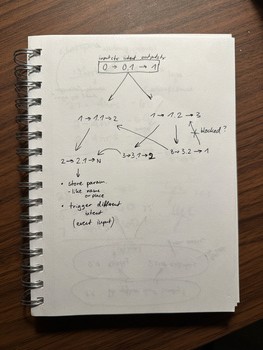 inputctx intent outputctx
0 → 0.1 → 1
1 → 1.1 → 2
1 → 1.2 → 3
blocked?
2 → 2.1 → N
3 → 3.1 → 2
3 → 3.2 → 1
• store param
- like name
or place
• trigger different
intent
(event input)